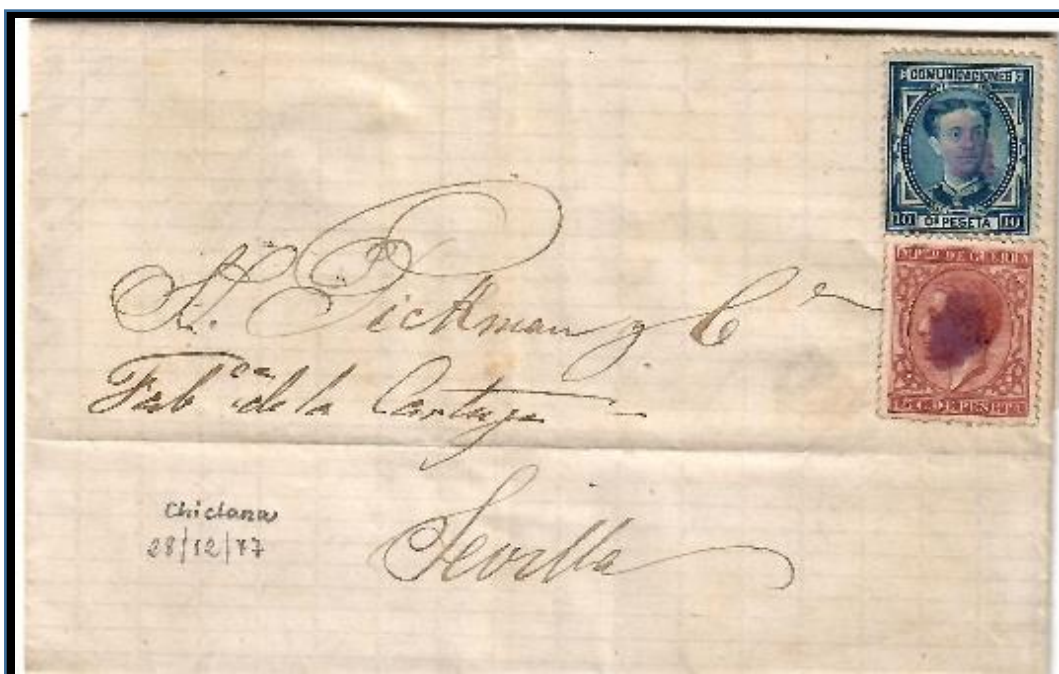 COMUNICACIONES
10 Cs PESETA 10
IMPTO DE GUERRA
15 C. DE PESETA
Sr. Pickman y Ca
Fabca de la Cartuja
Sevilla
Chiclana
28/12/77